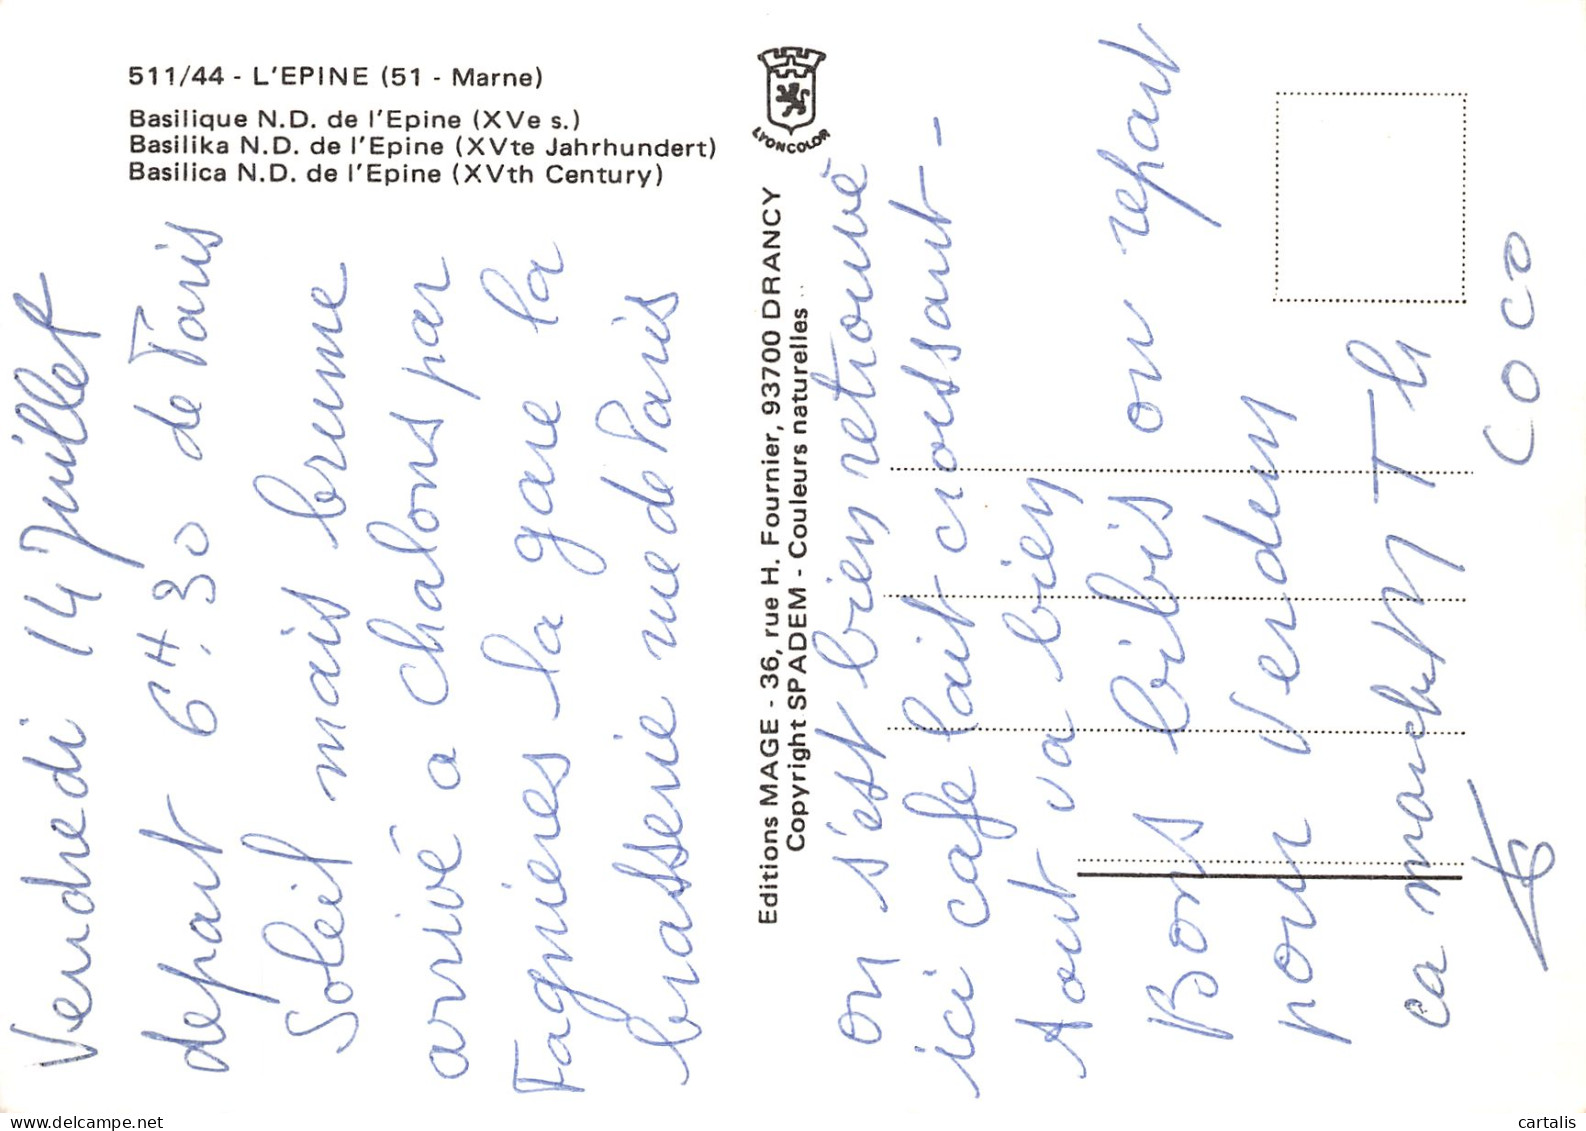 511/44 - L'EPINE (51 - Marne)
Basilique N.D. de l'Epine (XVe s.)
Basilika N.D. de l'Epine (XVte Jahrhundert)
Basilica N.D. de l'Epine (XVth Century)
LYONCOLOR
Editions MAGE - 36, rue H. Fournier, 93700 DRANCY
Copyright SPADEM - Couleurs naturelles
Vendredi 14 Juillet
depart 6H.30 de Paris
Soleil mais brume
arrivé a chalons par
Fagnieres la gare la
brasserie rue de Paris
on s'est bien retrouvé
ici cafe lait croissant -
tout va bien
Bons bibis on repart
pour Verdun
ca marche M Th
coco
www.delcampe.net
cartalis